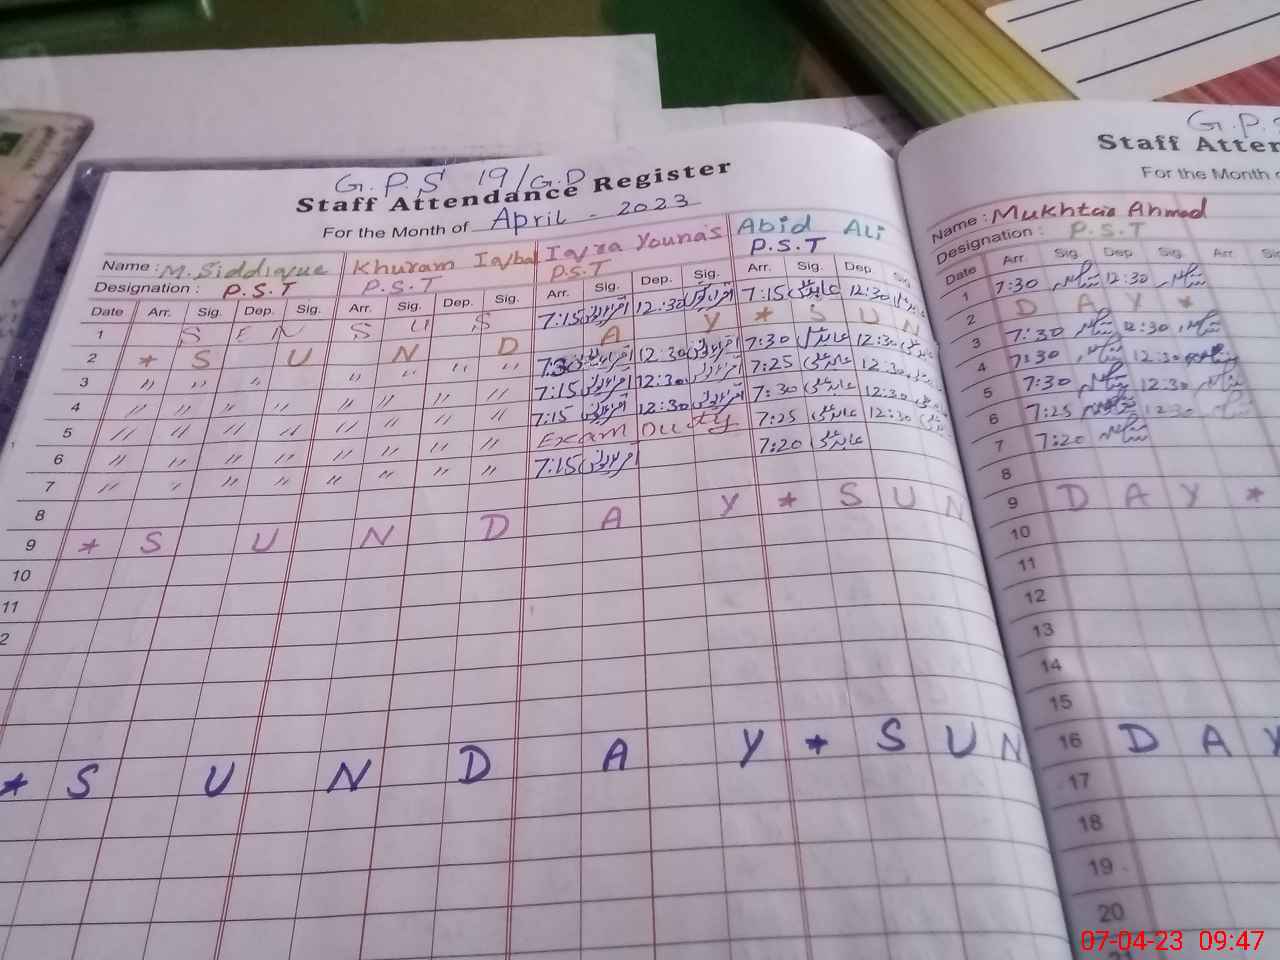 G.P.S 19/G.D
Staff Attendance Register
For the Month of April - 2023
Name : M. Siddique Khuram Iqbal Iqra Younas Abid Ali
Designation : P.S.T P.S.T P.S.T P.S.T
Date Arr. Sig. Dep. Sig. Arr. Sig. Dep. Sig. Arr. Sig. Dep. Sig. Arr. Sig. Dep. Sig.
1 S E N S U S 7:15 12:30 7:15 عابد علی 12:30
2 * S U N D A Y * S U N
3 〃 〃 〃 〃 〃 〃 〃 7:30 12:30 7:30 عابد علی 12:30
4 〃 〃 〃 〃 〃 〃 〃 〃 7:15 12:30 7:25 عابد علی 12:30
5 〃 〃 〃 〃 〃 〃 〃 〃 7:15 12:30 7:30 عابد علی 12:30
6 〃 〃 〃 〃 〃 〃 〃 〃 Exam Duty 7:25 عابد علی 12:30
7 〃 〃 〃 〃 〃 〃 〃 〃 7:15 7:20 عابد علی
8
9 * S U N D A Y * S U N
10
11
2
* S U N D A Y * S U N
G.P.S
Staff Atten
For the Month
Name : Mukhtar Ahmad
Designation : P.S.T
Date Arr. Sig. Dep Sig. Arr. Sig.
1 7:30 12:30
2 D A Y *
3 7:30 12:30
4 7:30 12:30
5 7:30 12:30
6 7:25 12:30
7 7:20
8
9 D A Y *
10
11
12
13
14
15
16 D A Y
17
18
19
20
21
07-04-23 09:47